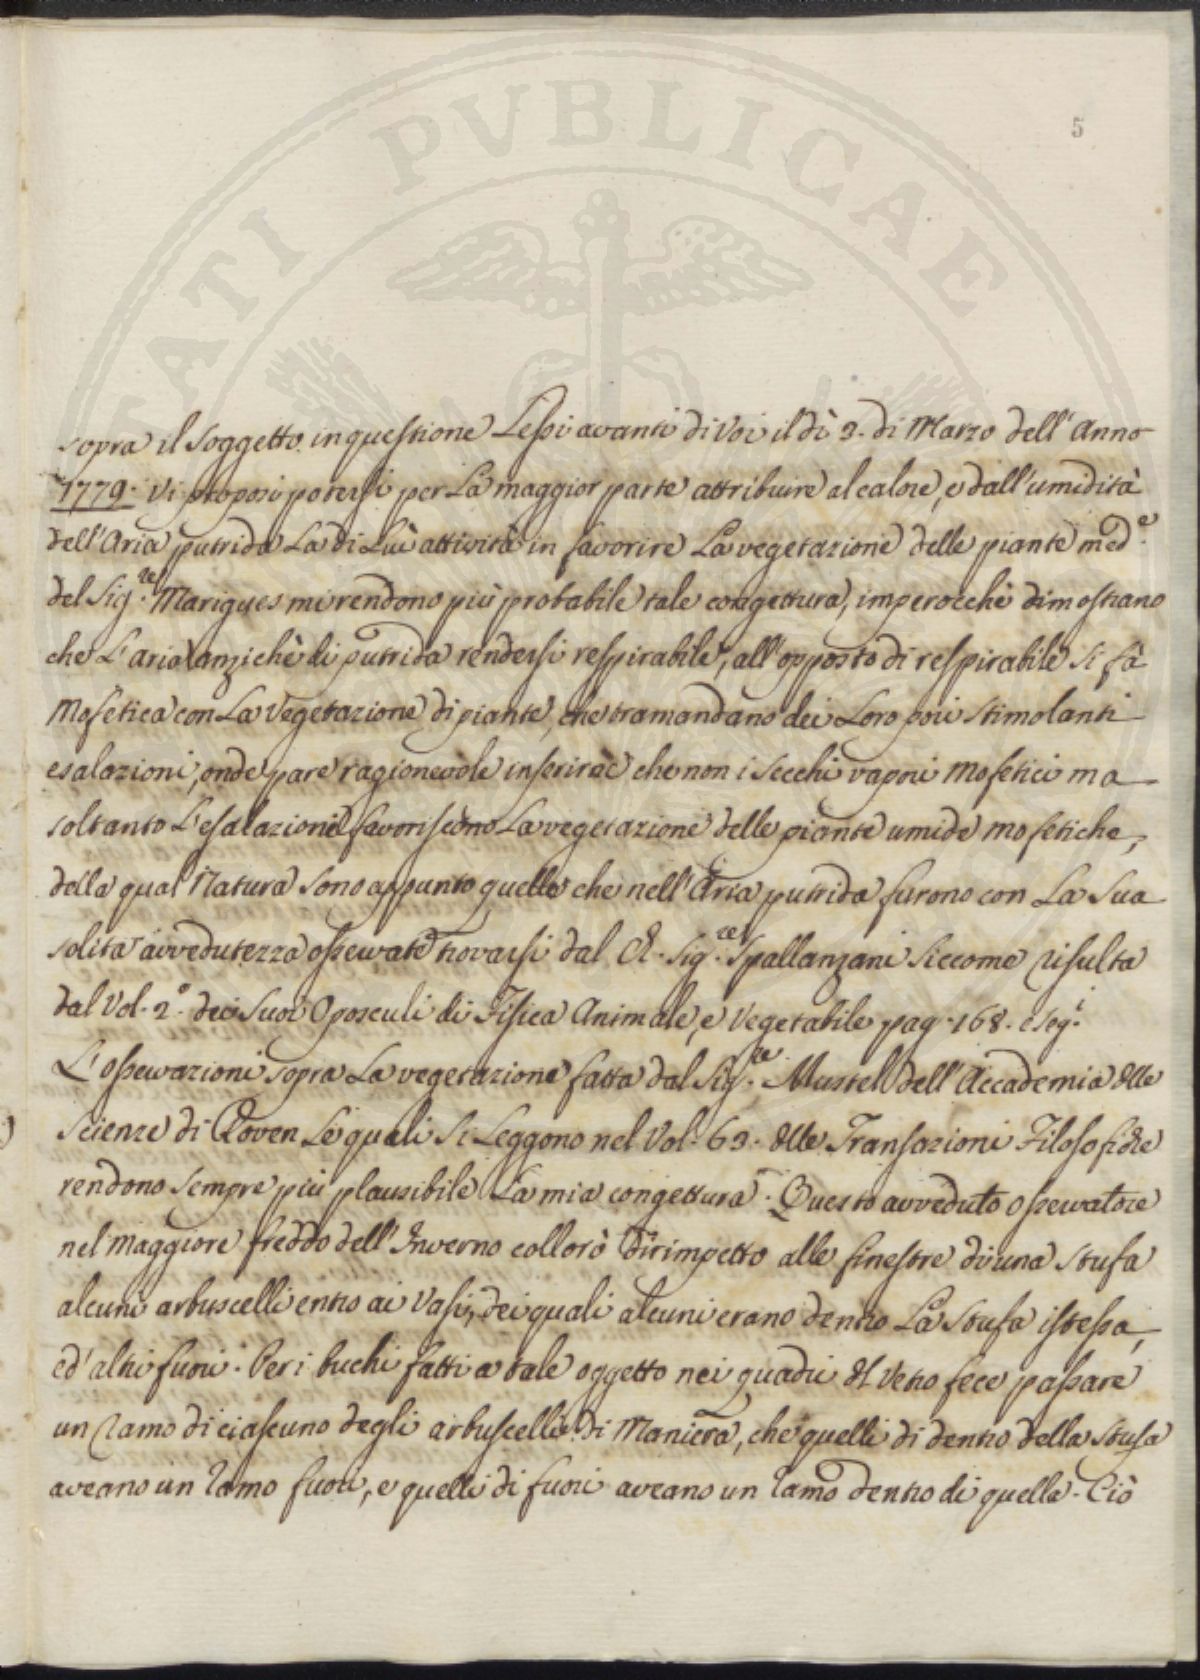 TATI PVBLICAE
5
sopra il soggetto in questione Lessi avanti di Voi il dì 3. di Marzo dell'Anno
1779. Vi proposi potersi per La maggior parte attribuire al calore, e dall'umidità
dell'Aria putrida La di Lui attività in favorire La vegetazione delle piante med.e
del Sig.re Marigues mi rendono più probabile tale congettura, imperocchè dimostrano
che L'aria anzichè di putrida rendersi respirabile, all'opposto di respirabile si fà
Mofetica con La Vegetazione di piante, che tramandano dei Loro pori stimolanti
esalazioni, onde pare ragionevole inferire che non i secchi vapori Mofetici ma
soltanto L'esalazioni favoriscono La vegetazione delle piante umide mofetiche,
della qual Natura sono appunto quelle che nell'Aria putrida furono con La Sua
solita avvedutezza osservate trovarsi dal Ch. Sig.re Spallanzani siccome risulta
dal Vol. 2.o dei Suoi Oposculi di Fisica Animale, e Vegetabile pag. 168. e seg.i
L'osservazioni sopra La vegetazione fatta dal Sig.re Mustel dell'Accademia delle
Scienze di Roven Le quali si Leggono nel Vol. 63. delle Transazioni Filosofiche
rendono sempre più plausibile La mia congettura. Questo avveduto osservatore
nel maggiore freddo dell'Inverno collocò dirimpetto alle finestre di una stufa
alcuni arbuscelli entro ai Vasi, dei quali alcuni erano dentro La Stufa istessa,
ed'altri fuori. Per i buchi fatti a tale oggetto nei quadri del Vetro fece passare
un ramo di ciascuno degli arbuscelli di Maniera, che quelli di dentro della stufa
aveano un ramo fuori, e quelli di fuori aveano un ramo dentro di quella. Ciò